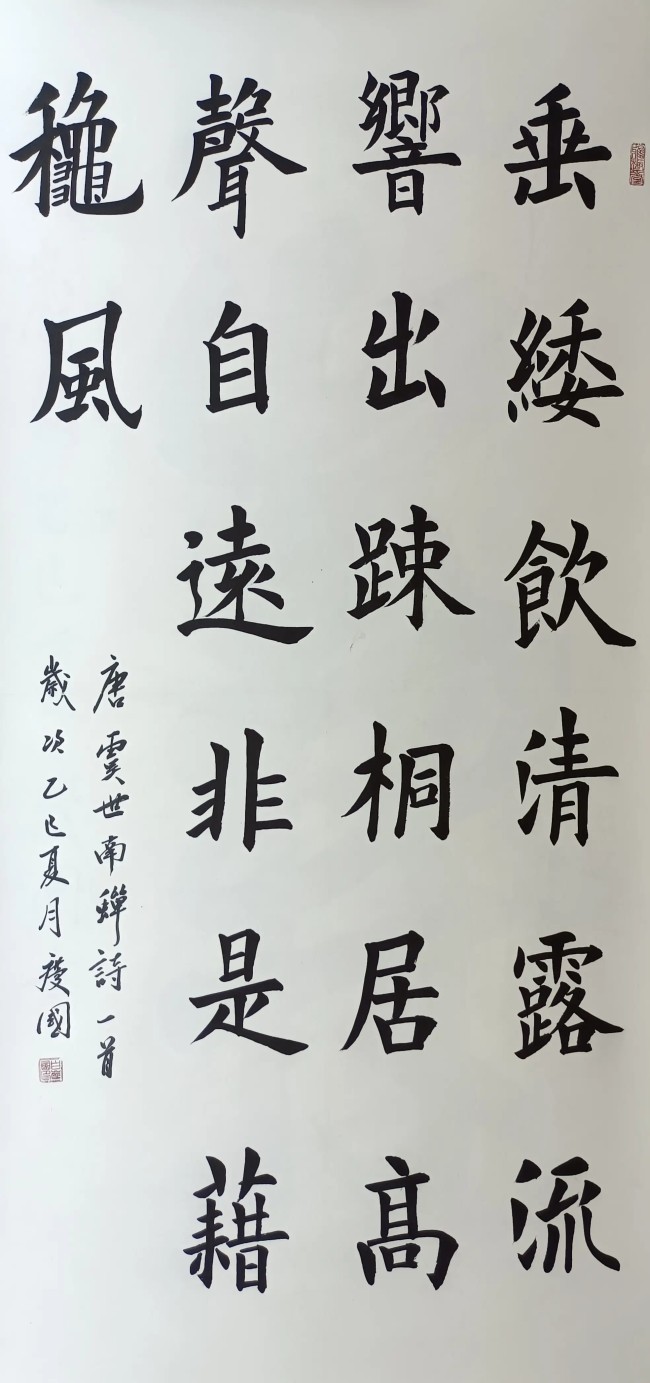 垂緌飲清露流
響出踈桐居高
聲自遠非是藉
龝風
唐虞世南蟬詩一首
歲次乙巳夏月慶國